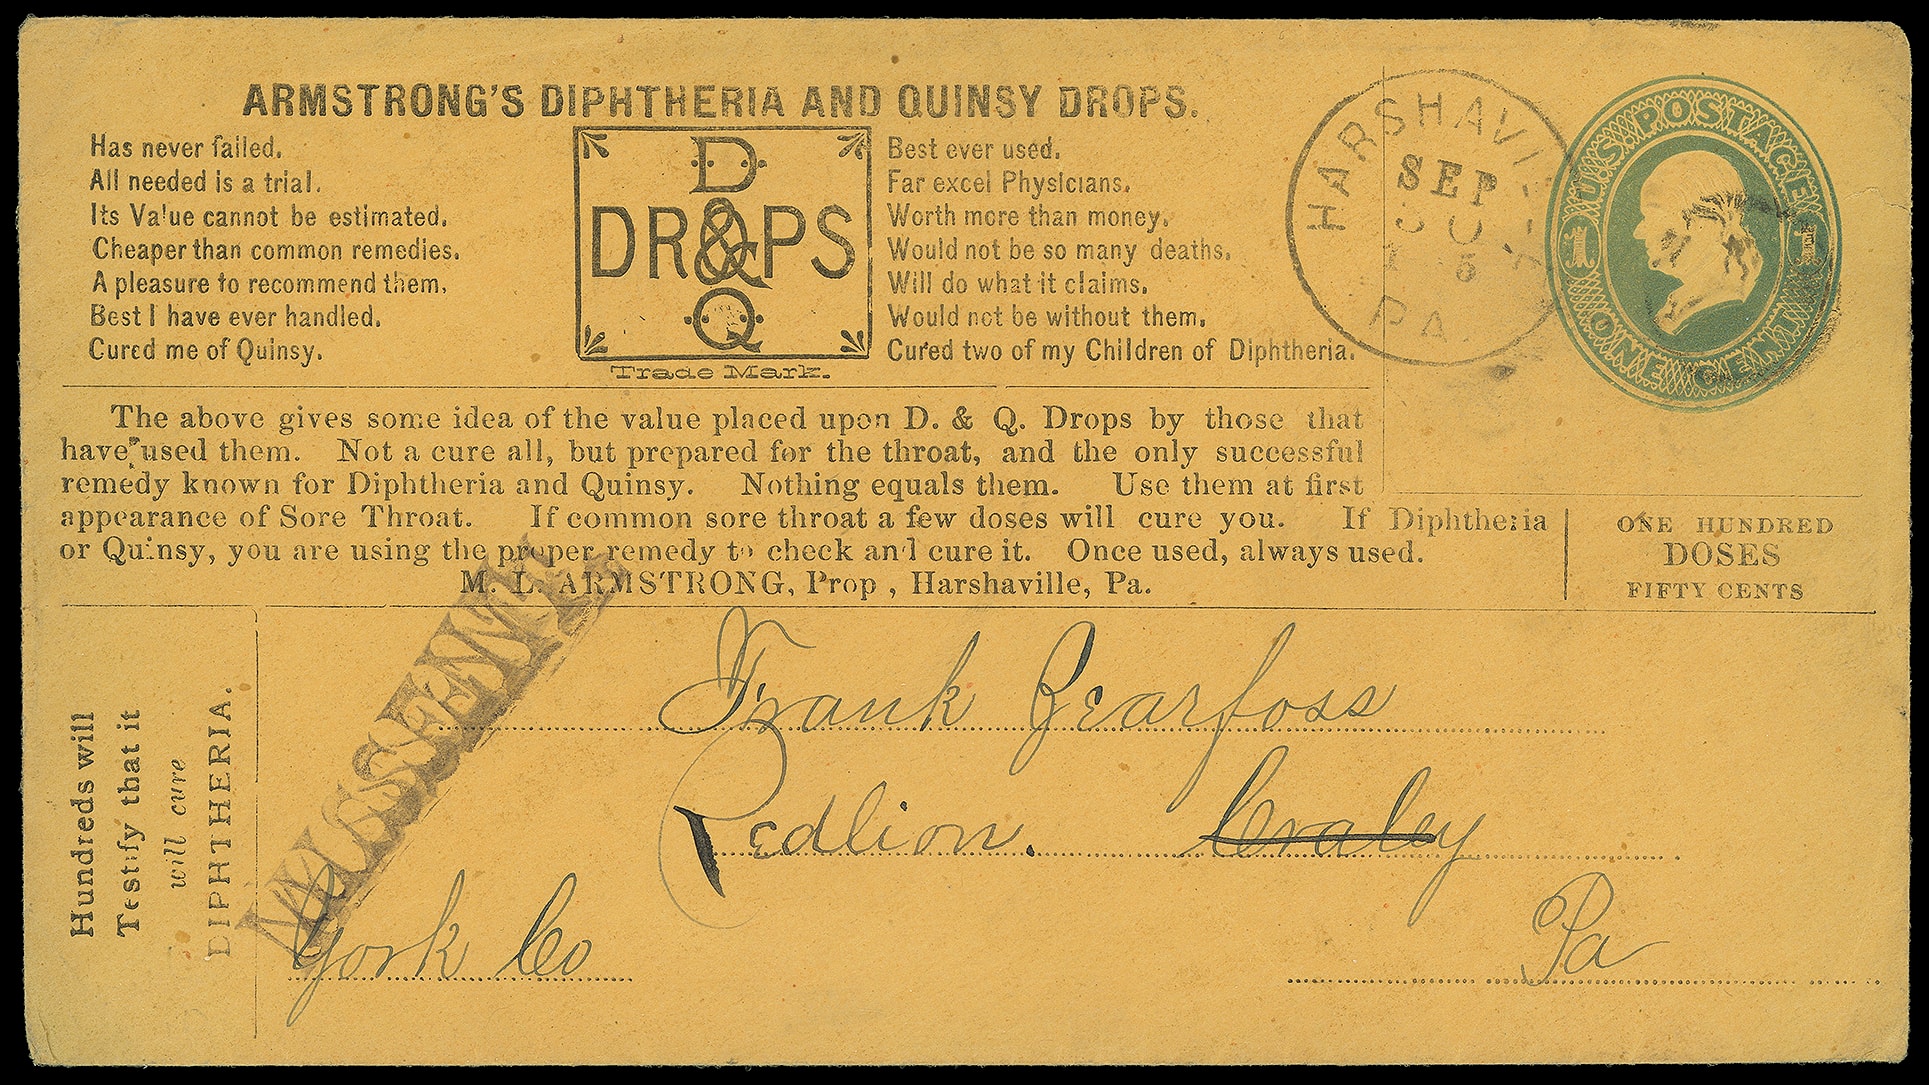 ARMSTRONG'S DIPHTHERIA AND QUINSY DROPS.
Has never failed.
All needed is a trial.
Its Value cannot be estimated.
Cheaper than common remedies.
A pleasure to recommend them.
Best I have ever handled.
Cured me of Quinsy.
D
DR&PS
Q
Trade Mark.
Best ever used.
Far excel Physicians.
Worth more than money.
Would not be so many deaths.
Will do what it claims.
Would not be without them.
Cured two of my Children of Diphtheria.
SEP
PA
U.S. POSTAGE
1 1
ONE CENT
The above gives some idea of the value placed upon D. & Q. Drops by those that
have used them. Not a cure all, but prepared for the throat, and the only successful
remedy known for Diphtheria and Quinsy. Nothing equals them. Use them at first
appearance of Sore Throat. If common sore throat a few doses will cure you. If Diphtheria
or Quinsy, you are using the proper remedy to check and cure it. Once used, always used.
M. L. ARMSTRONG, Prop, Harshaville, Pa.
ONE HUNDRED
DOSES
FIFTY CENTS
Hundreds will
Testify that it
will cure
DIPHTHERIA.
MISSENT
Frank Gearfoss
Redlion. Craley
York Co Pa